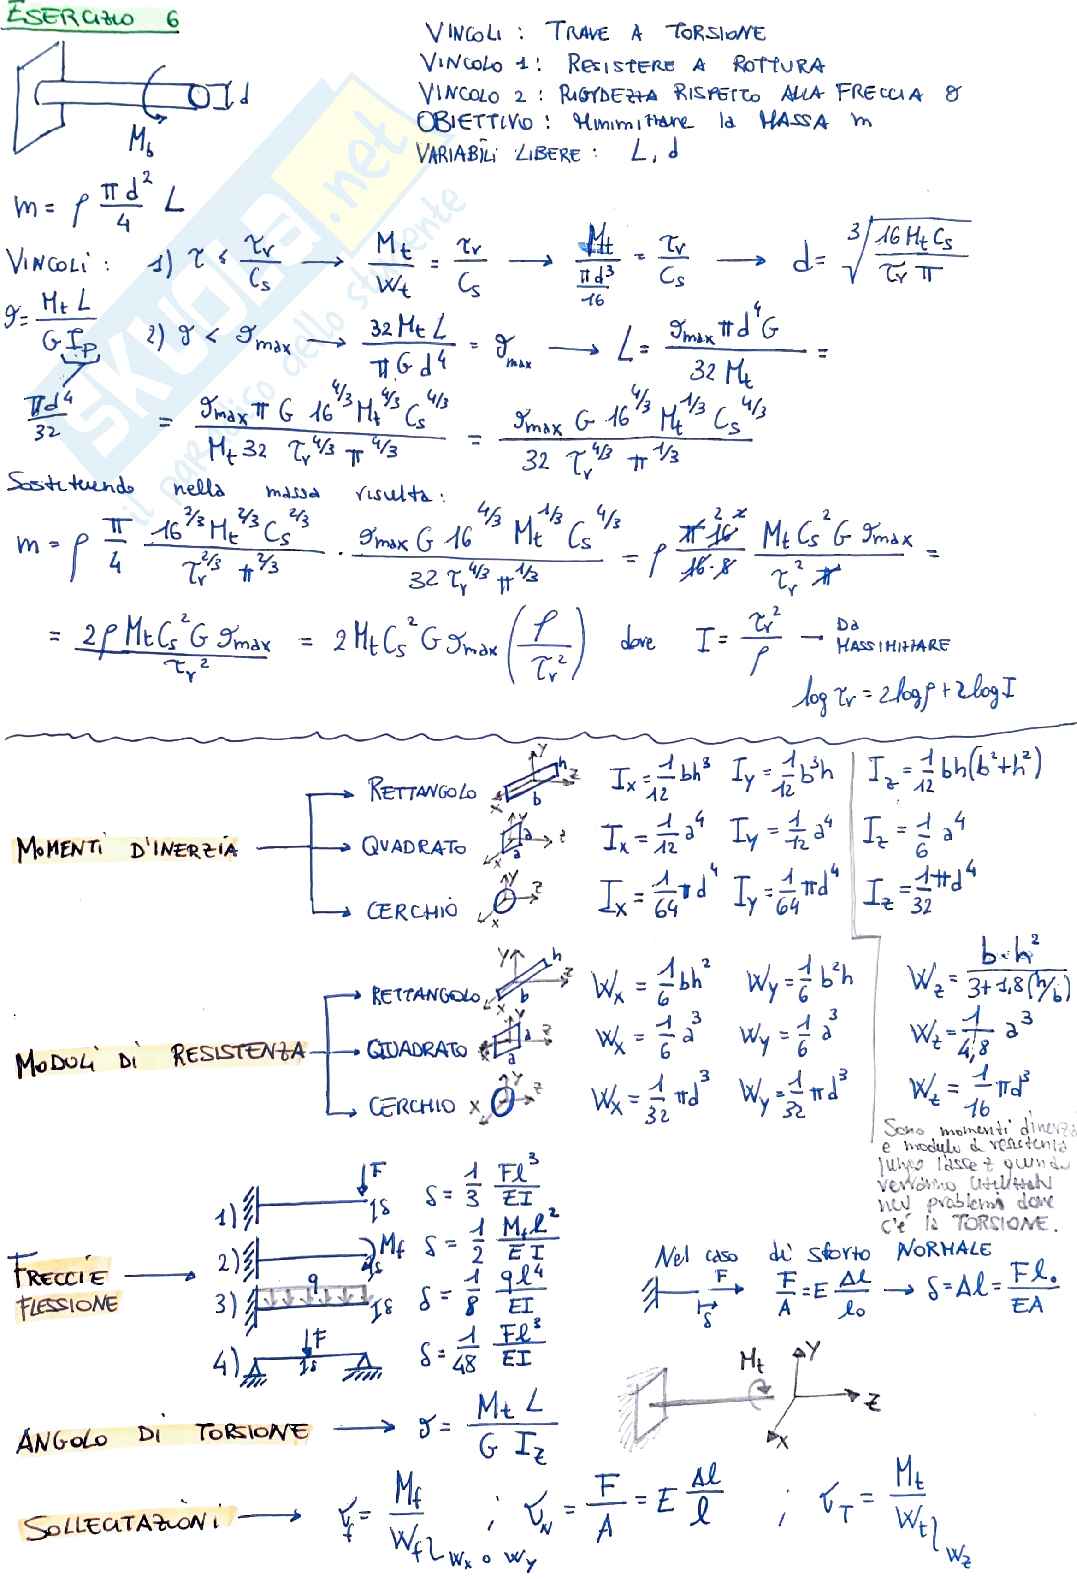 ESERCIZIO 6
VINCOLI : TRAVE A TORSIONE
VINCOLO 1 : RESISTERE A ROTTURA
VINCOLO 2 : RIGIDEZZA RISPETTO ALLA FRECCIA ϑ
OBIETTIVO : Minimizzare la MASSA m
VARIABILI LIBERE : L, d
d
Mb
m = ρ πd²/4 L
VINCOLI : 1) τ < τr/Cs → Mt/Wt = τr/Cs → Mt/(πd³/16) = τr/Cs → d = ∛(16 Mt Cs / τr π)
ϑ = Mt L / G Ip
πd⁴/32
2) ϑ < ϑmax → 32 Mt L / π G d⁴ = ϑmax → L = ϑmax π d⁴ G / 32 Mt =
= ϑmax π G 16^4/3 Mt^4/3 Cs^4/3 / Mt 32 τr^4/3 π^4/3 = ϑmax G 16^4/3 Mt^1/3 Cs^4/3 / 32 τr^4/3 π^1/3
Sostituendo nella massa risulta :
m = ρ π/4 16^2/3 Mt^2/3 Cs^2/3 / τr^2/3 π^2/3 · ϑmax G 16^4/3 Mt^1/3 Cs^4/3 / 32 τr^4/3 π^1/3 = ρ π 16² / 16·8 Mt Cs² G ϑmax / τr² π =
= 2ρ Mt Cs² G ϑmax / τr² = 2 Mt Cs² G ϑmax (ρ/τr²) dove I = τr²/ρ → DA MASSIMIZZARE
log τr = 2logρ + 2logI
MOMENTI D'INERZIA
RETTANGOLO Ix = 1/12 bh³ Iy = 1/12 b³h Iz = 1/12 bh(b²+h²)
QUADRATO Ix = 1/12 a⁴ Iy = 1/12 a⁴ Iz = 1/6 a⁴
CERCHIO Ix = 1/64 πd⁴ Iy = 1/64 πd⁴ Iz = 1/32 πd⁴
MODULI DI RESISTENZA
RETTANGOLO Wx = 1/6 bh² Wy = 1/6 b²h Wz = b·h² / 3+1,8(h/b)
QUADRATO Wx = 1/6 a³ Wy = 1/6 a³ Wz = 1/4,8 a³
CERCHIO Wx = 1/32 πd³ Wy = 1/32 πd³ Wz = 1/16 πd³
Sono momenti d'inerzia
e modulo di resistenza
lungo l'asse z quindi
verranno utilizzati
nei problemi dove
c'è la TORSIONE.
FRECCIE FLESSIONE
1) F δ δ = 1/3 Fl³/EI
2) Mf δ δ = 1/2 Mf l²/EI
3) q δ δ = 1/8 ql⁴/EI
4) F δ δ = 1/48 Fl³/EI
Nel caso di sforzo NORMALE
F δ F/A = E Δl/l₀ → δ = Δl = Fl₀/EA
Mt Y Z X
ANGOLO DI TORSIONE → ϑ = Mt L / G Iz
SOLLECITAZIONI → σf = Mf/Wf Wx o Wy ; σN = F/A = E Δl/l ; τT = Mt/Wt Wz
SKUOLA.net
il paradiso dello studente